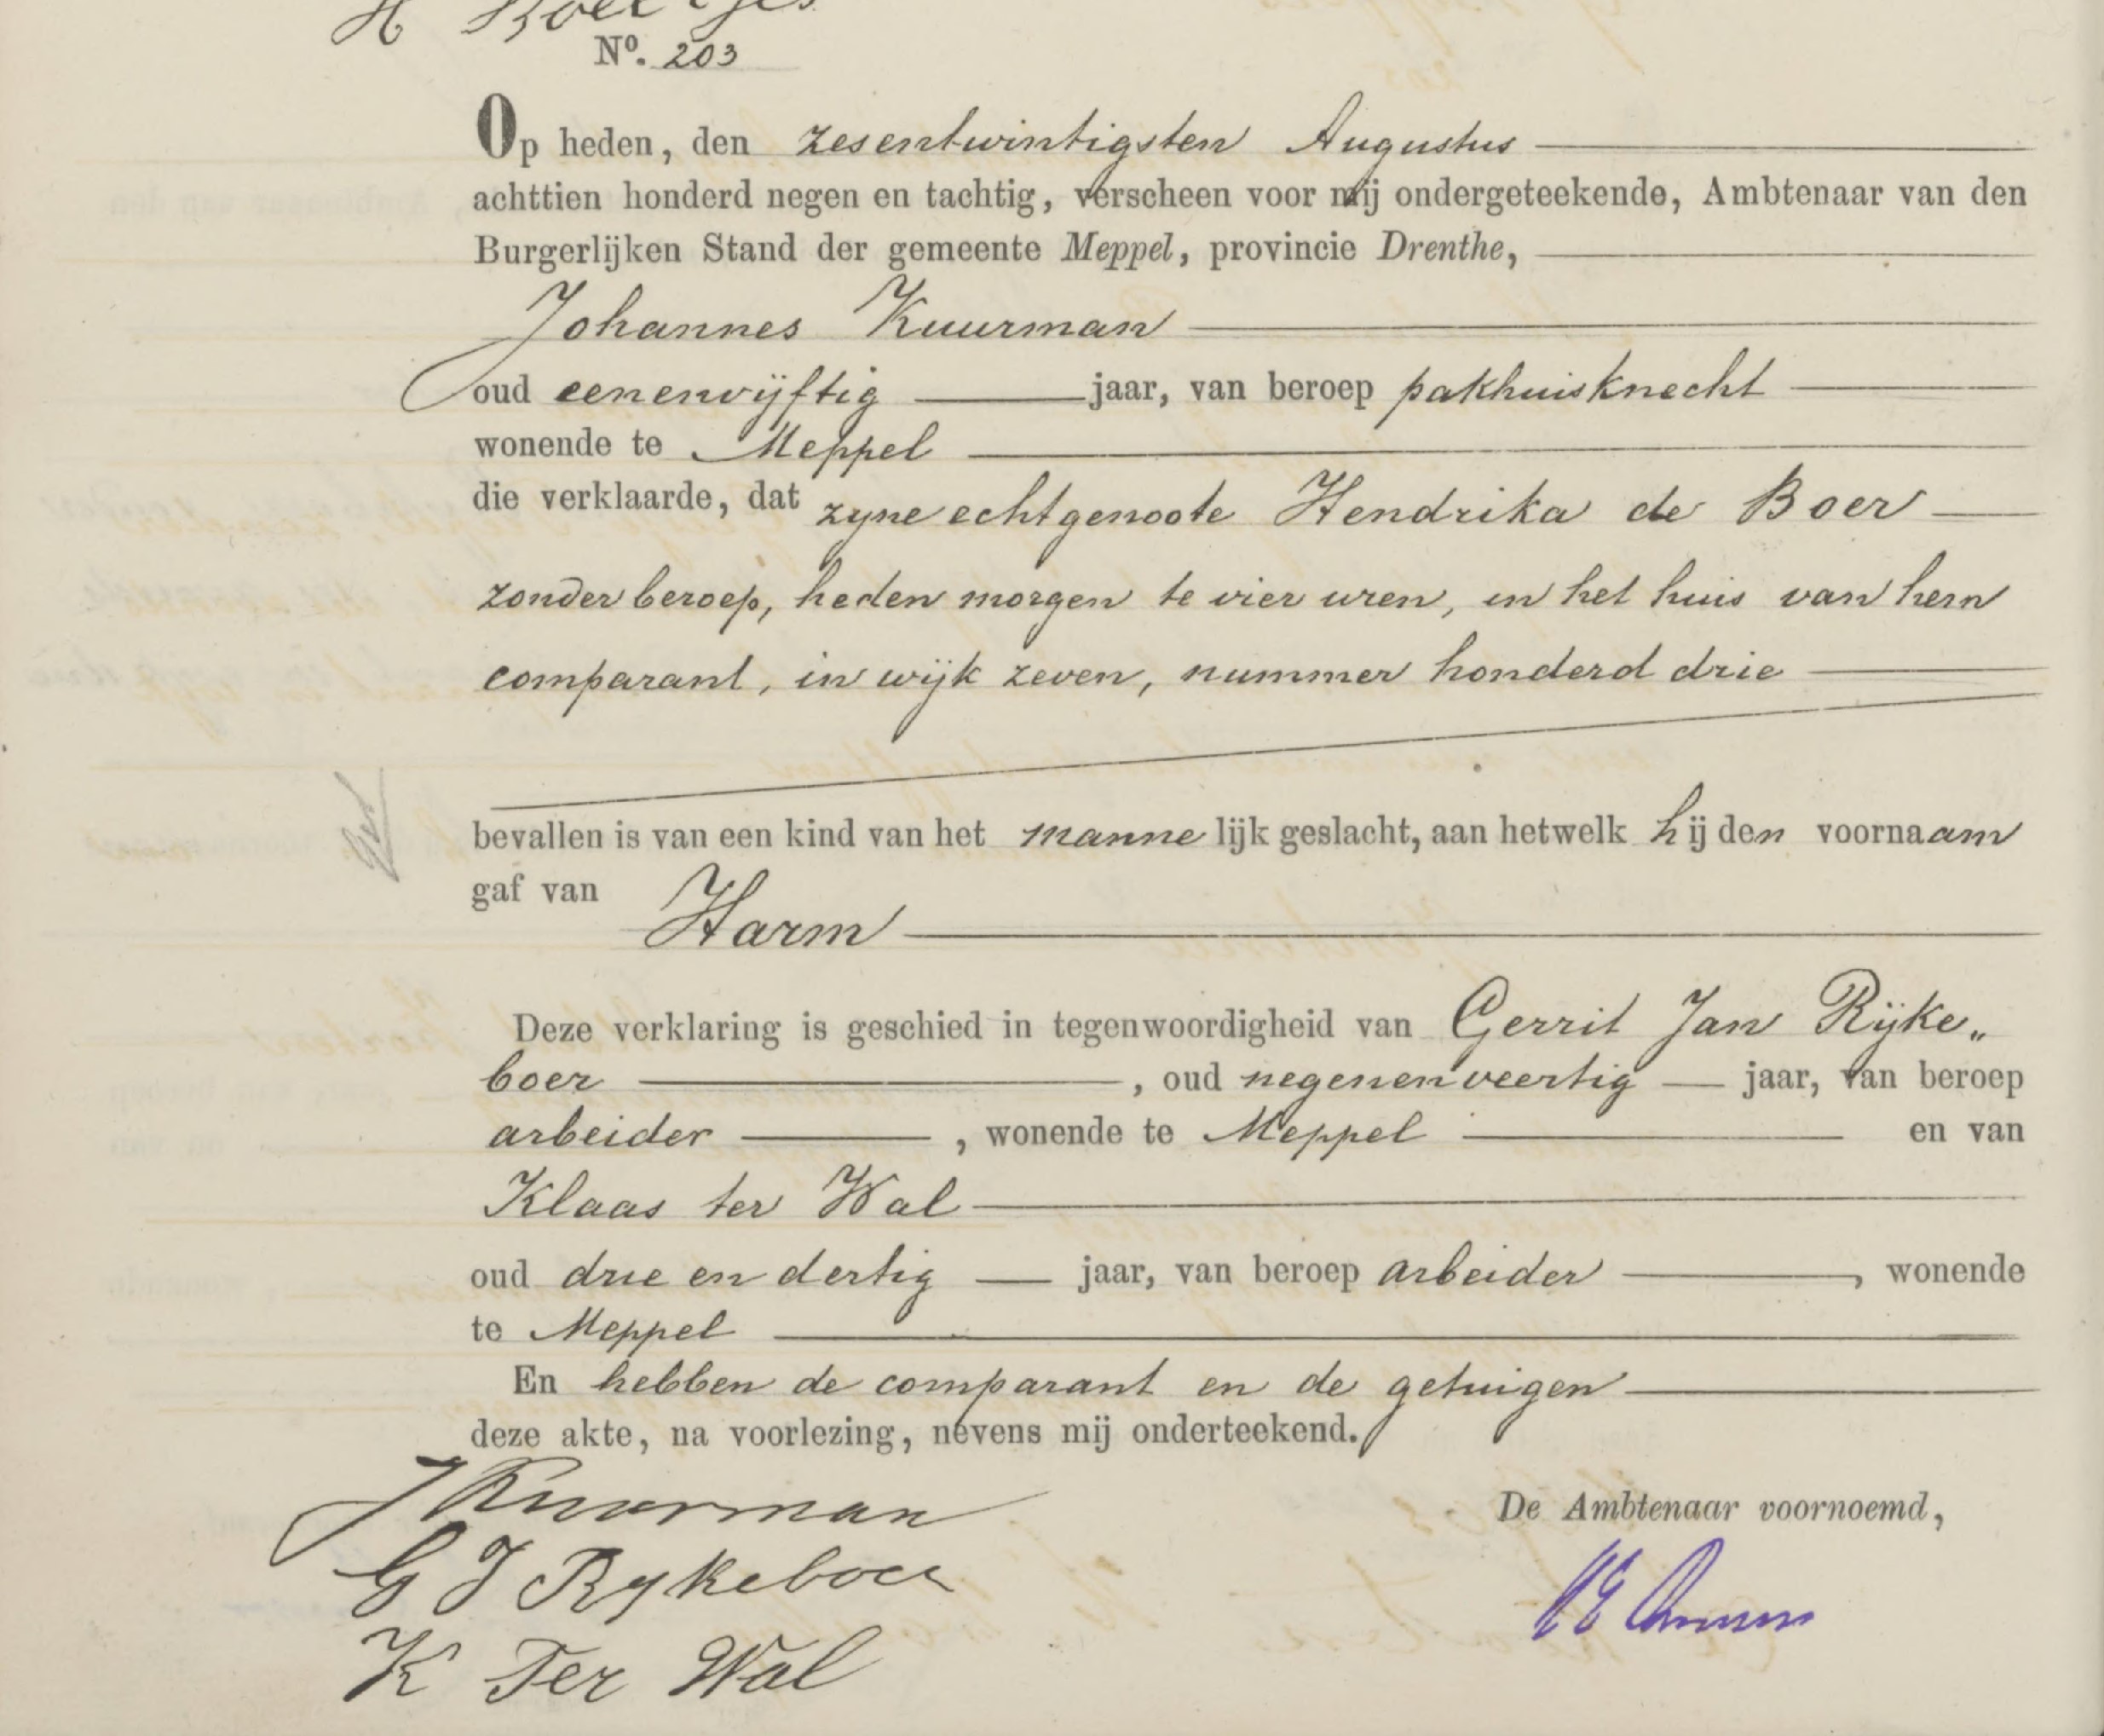 H
Nº. 203
Op heden, den zesentwintigsten Augustus
achttien honderd negen en tachtig, verscheen voor mij ondergeteekende, Ambtenaar van den
Burgerlijken Stand der gemeente Meppel, provincie Drenthe,
Johannes Kuurman
oud eenenvijftig jaar, van beroep pakhuisknecht
wonende te Meppel
die verklaarde, dat zyne echtgenoote Hendrika de Boer
zonder beroep, heden morgen te vier uren, in het huis van hem
comparant, in wijk zeven, nummer honderd drie
bevallen is van een kind van het mannelijk geslacht, aan hetwelk hij den voornaam
gaf van Harm
Deze verklaring is geschied in tegenwoordigheid van Gerrit Jan Rijke„
boer, oud negenenveertig jaar, van beroep
arbeider, wonende te Meppel en van
Klaas ter Wal
oud drie en dertig jaar, van beroep arbeider, wonende
te Meppel
En hebben de comparant en de getuigen
deze akte, na voorlezing, nevens mij onderteekend.
J Kuurman
De Ambtenaar voornoemd,
G J Rykeboer
K Ter Wal